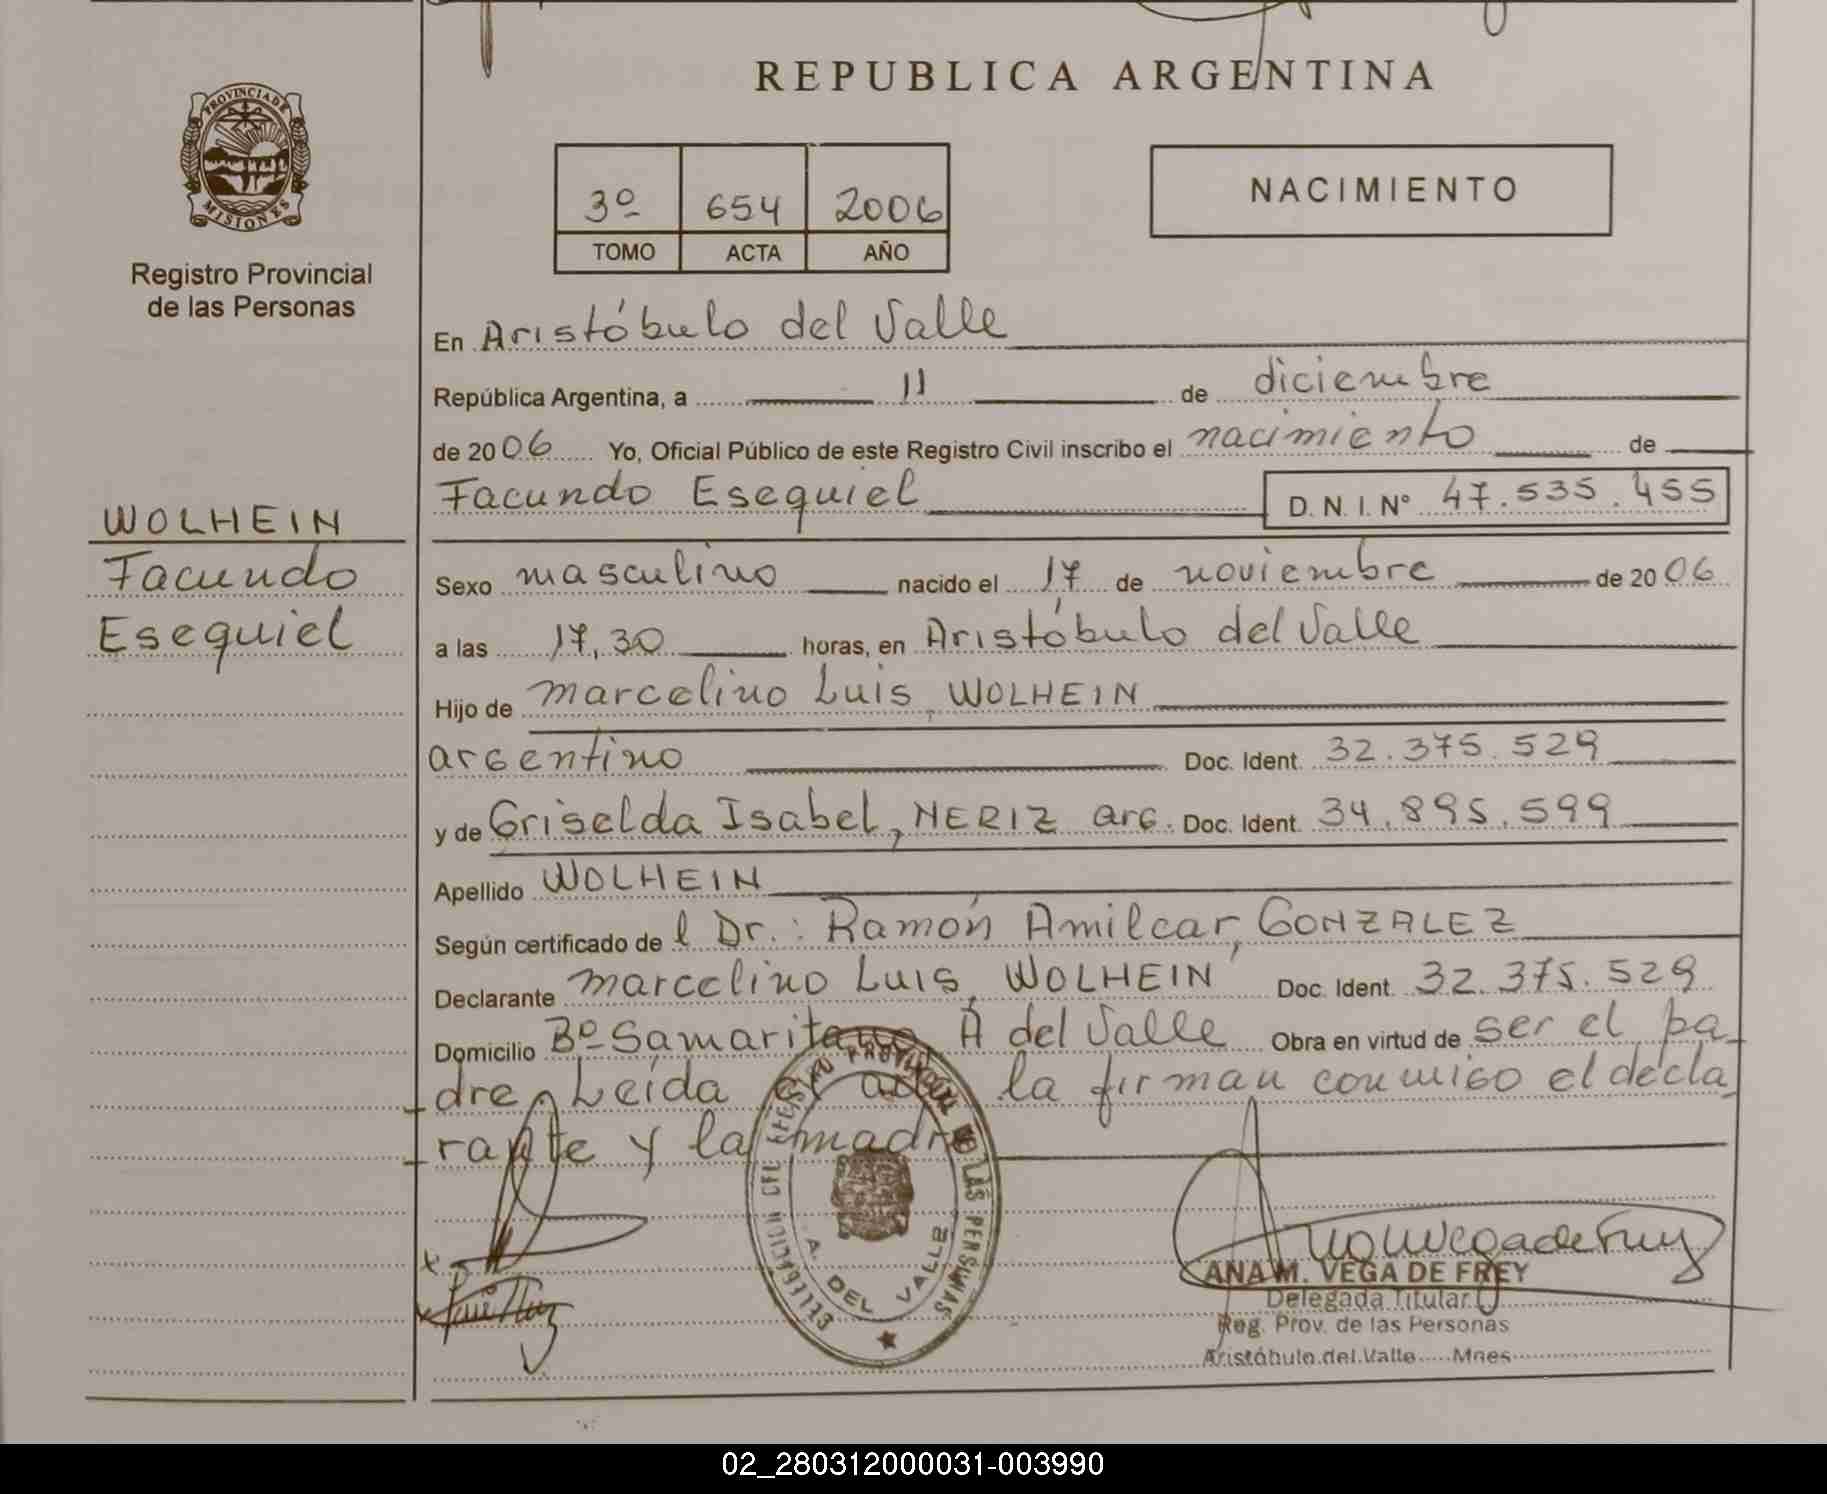 REPUBLICA ARGENTINA
PROVINCIA DE
MISIONES
Registro Provincial
de las Personas
3º 654 2006
TOMO ACTA AÑO
NACIMIENTO
En Aristóbulo del Valle
República Argentina, a 11 de diciembre
de 2006 Yo, Oficial Público de este Registro Civil inscribo el nacimiento de
Facundo Esequiel D. N. I. Nº 47.535.455
WOLHEIN
Facundo
Esequiel
Sexo masculino nacido el 17 de noviembre de 2006
a las 17,30 horas, en Aristóbulo del Valle
Hijo de Marcelino Luis, WOLHEIN
argentino Doc. Ident. 32.375.529
y de Griselda Isabel, NERIZ arg. Doc. Ident. 34.895.599
Apellido WOLHEIN
Según certificado de l Dr.: Ramón Amilcar, GONZALEZ
Declarante Marcelino Luis, WOLHEIN Doc. Ident. 32.375.529
Domicilio Bº Samaritano A del Valle Obra en virtud de ser el pa
dre, Leída el acta la firman conmigo el decla
rante y la madre
PROVINCIAL DE LAS PERSONAS
A. DEL VALLE
ANA M. VEGA DE FREY
Delegada Titular
Reg. Prov. de las Personas
Aristóbulo del Valle Mnes
02_280312000031-003990